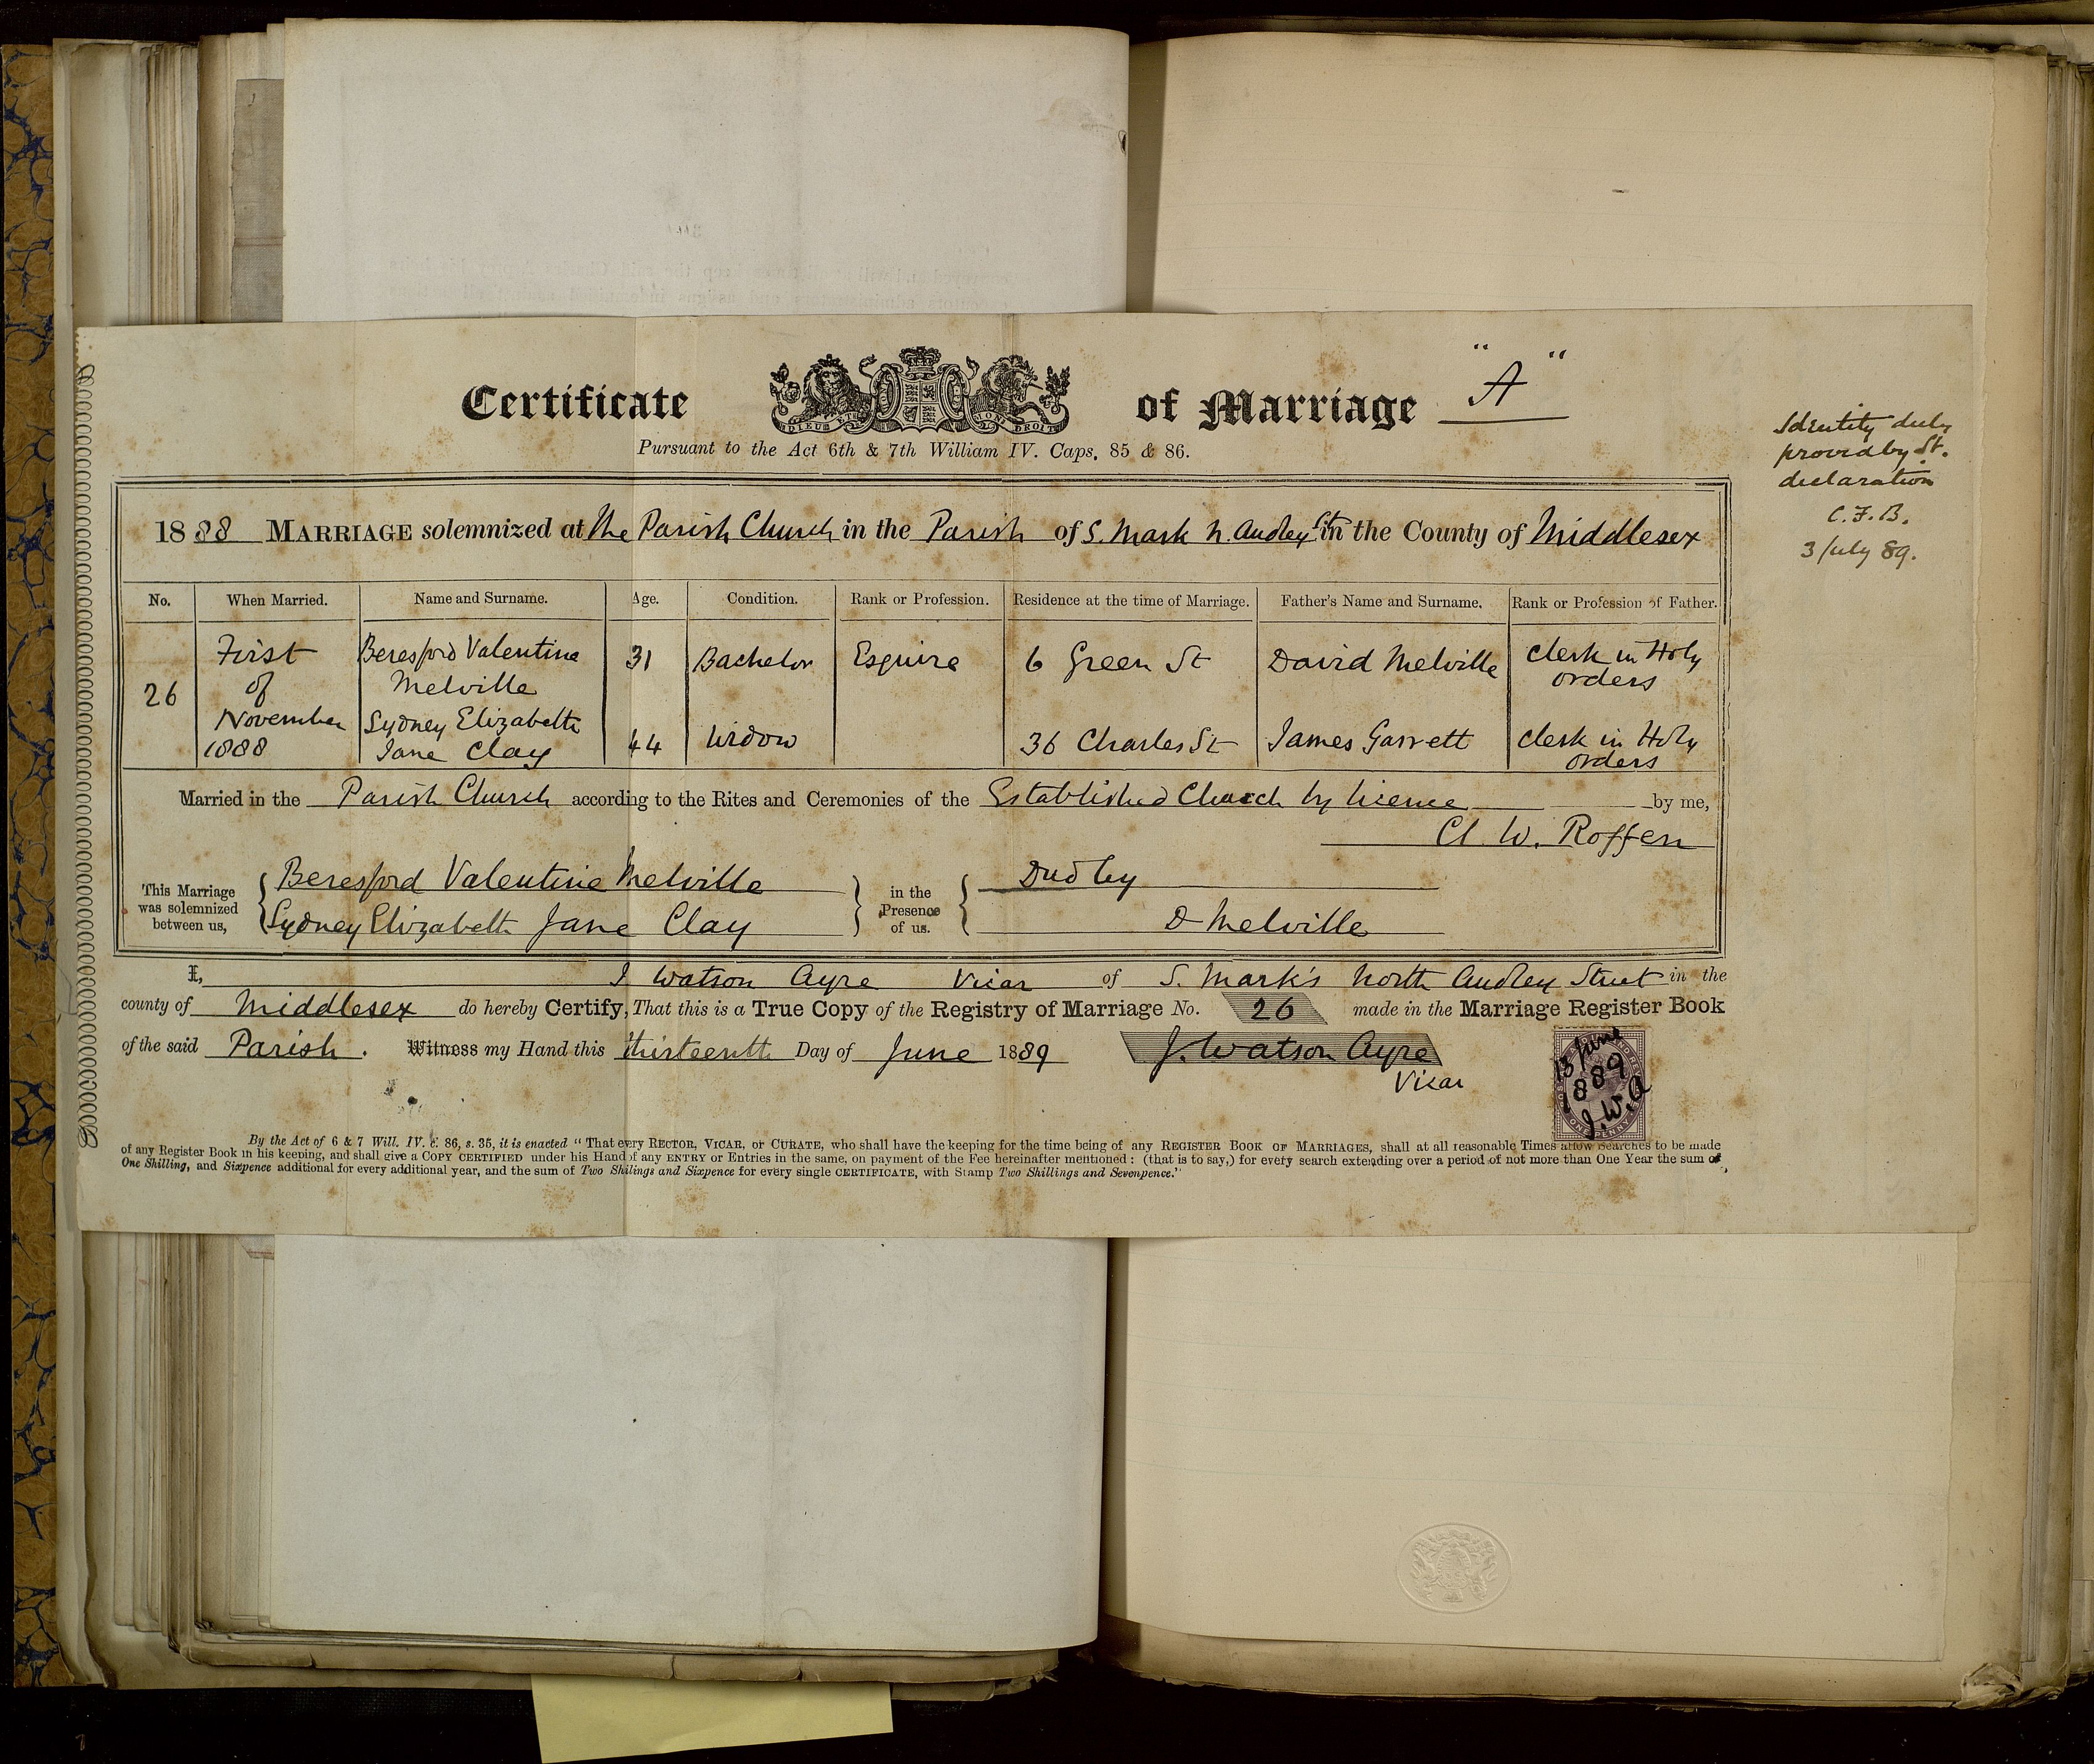 Certificate of Marriage "A"
DIEU ET MON DROIT
Pursuant to the Act 6th & 7th William IV. Caps. 85 & 86.
Identity duly
proved by St.
declaration
C.F.B.
3 July 89.
1888 MARRIAGE solemnized at the Parish Church in the Parish of S. Mark N. Audley St in the County of Middlesex
No. When Married. Name and Surname. Age. Condition. Rank or Profession. Residence at the time of Marriage. Father's Name and Surname. Rank or Profession of Father.
26
First
of
November
1888
Beresford Valentine
Melville
31 Bachelor Esquire 6 Green St David Melville Clerk in Holy
orders
Sydney Elizabeth
Jane Clay
44 Widow 36 Charles St James Garrett Clerk in Holy
orders
Married in the Parish Church according to the Rites and Ceremonies of the Established Church by licence by me,
A. W. Roffen
This Marriage
was solemnized
between us,
Beresford Valentine Melville
Sydney Elizabeth Jane Clay
in the
Presence
of us.
Dudley
D Melville
I, J Watson Ayre Vicar of S. Mark's North Audley Street in the
county of Middlesex do hereby Certify, That this is a True Copy of the Registry of Marriage No. 26 made in the Marriage Register Book
of the said Parish. Witness my Hand this thirteenth Day of June 1889 J. Watson Ayre
Vicar
13 June
1889
J.W.A
By the Act of 6 & 7 Will. IV. c. 86, s. 35, it is enacted "That every RECTOR, VICAR, or CURATE, who shall have the keeping for the time being of any REGISTER BOOK OF MARRIAGES, shall at all reasonable Times allow Searches to be made
of any Register Book in his keeping, and shall give a COPY CERTIFIED under his Hand of any ENTRY or Entries in the same, on payment of the Fee hereinafter mentioned: (that is to say,) for every search extending over a period of not more than One Year the sum of
One Shilling, and Sixpence additional for every additional year, and the sum of Two Shilings and Sixpence for every single CERTIFICATE, with Stamp Two Shillings and Sevenpence."